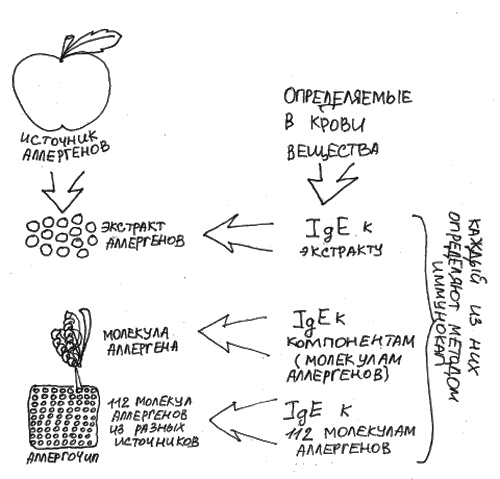 ИСТОЧНИК
АЛЛЕРГЕНОВ
ОПРЕДЕЛЯЕМЫЕ
В КРОВИ
ВЕЩЕСТВА
ЭКСТРАКТ
АЛЛЕРГЕНОВ
IgE К
ЭКСТРАКТУ
МОЛЕКУЛА
АЛЛЕРГЕНА
IgE К
КОМПОНЕНТАМ
(МОЛЕКУЛАМ
АЛЛЕРГЕНОВ)
112 МОЛЕКУЛ
АЛЛЕРГЕНОВ
ИЗ РАЗНЫХ
ИСТОЧНИКОВ
АЛЛЕРГОЧИП
IgE К
112 МОЛЕКУЛАМ
АЛЛЕРГЕНОВ
КАЖДЫЙ ИЗ НИХ
ОПРЕДЕЛЯЮТ МЕТОДОМ
ИММУНОКАП